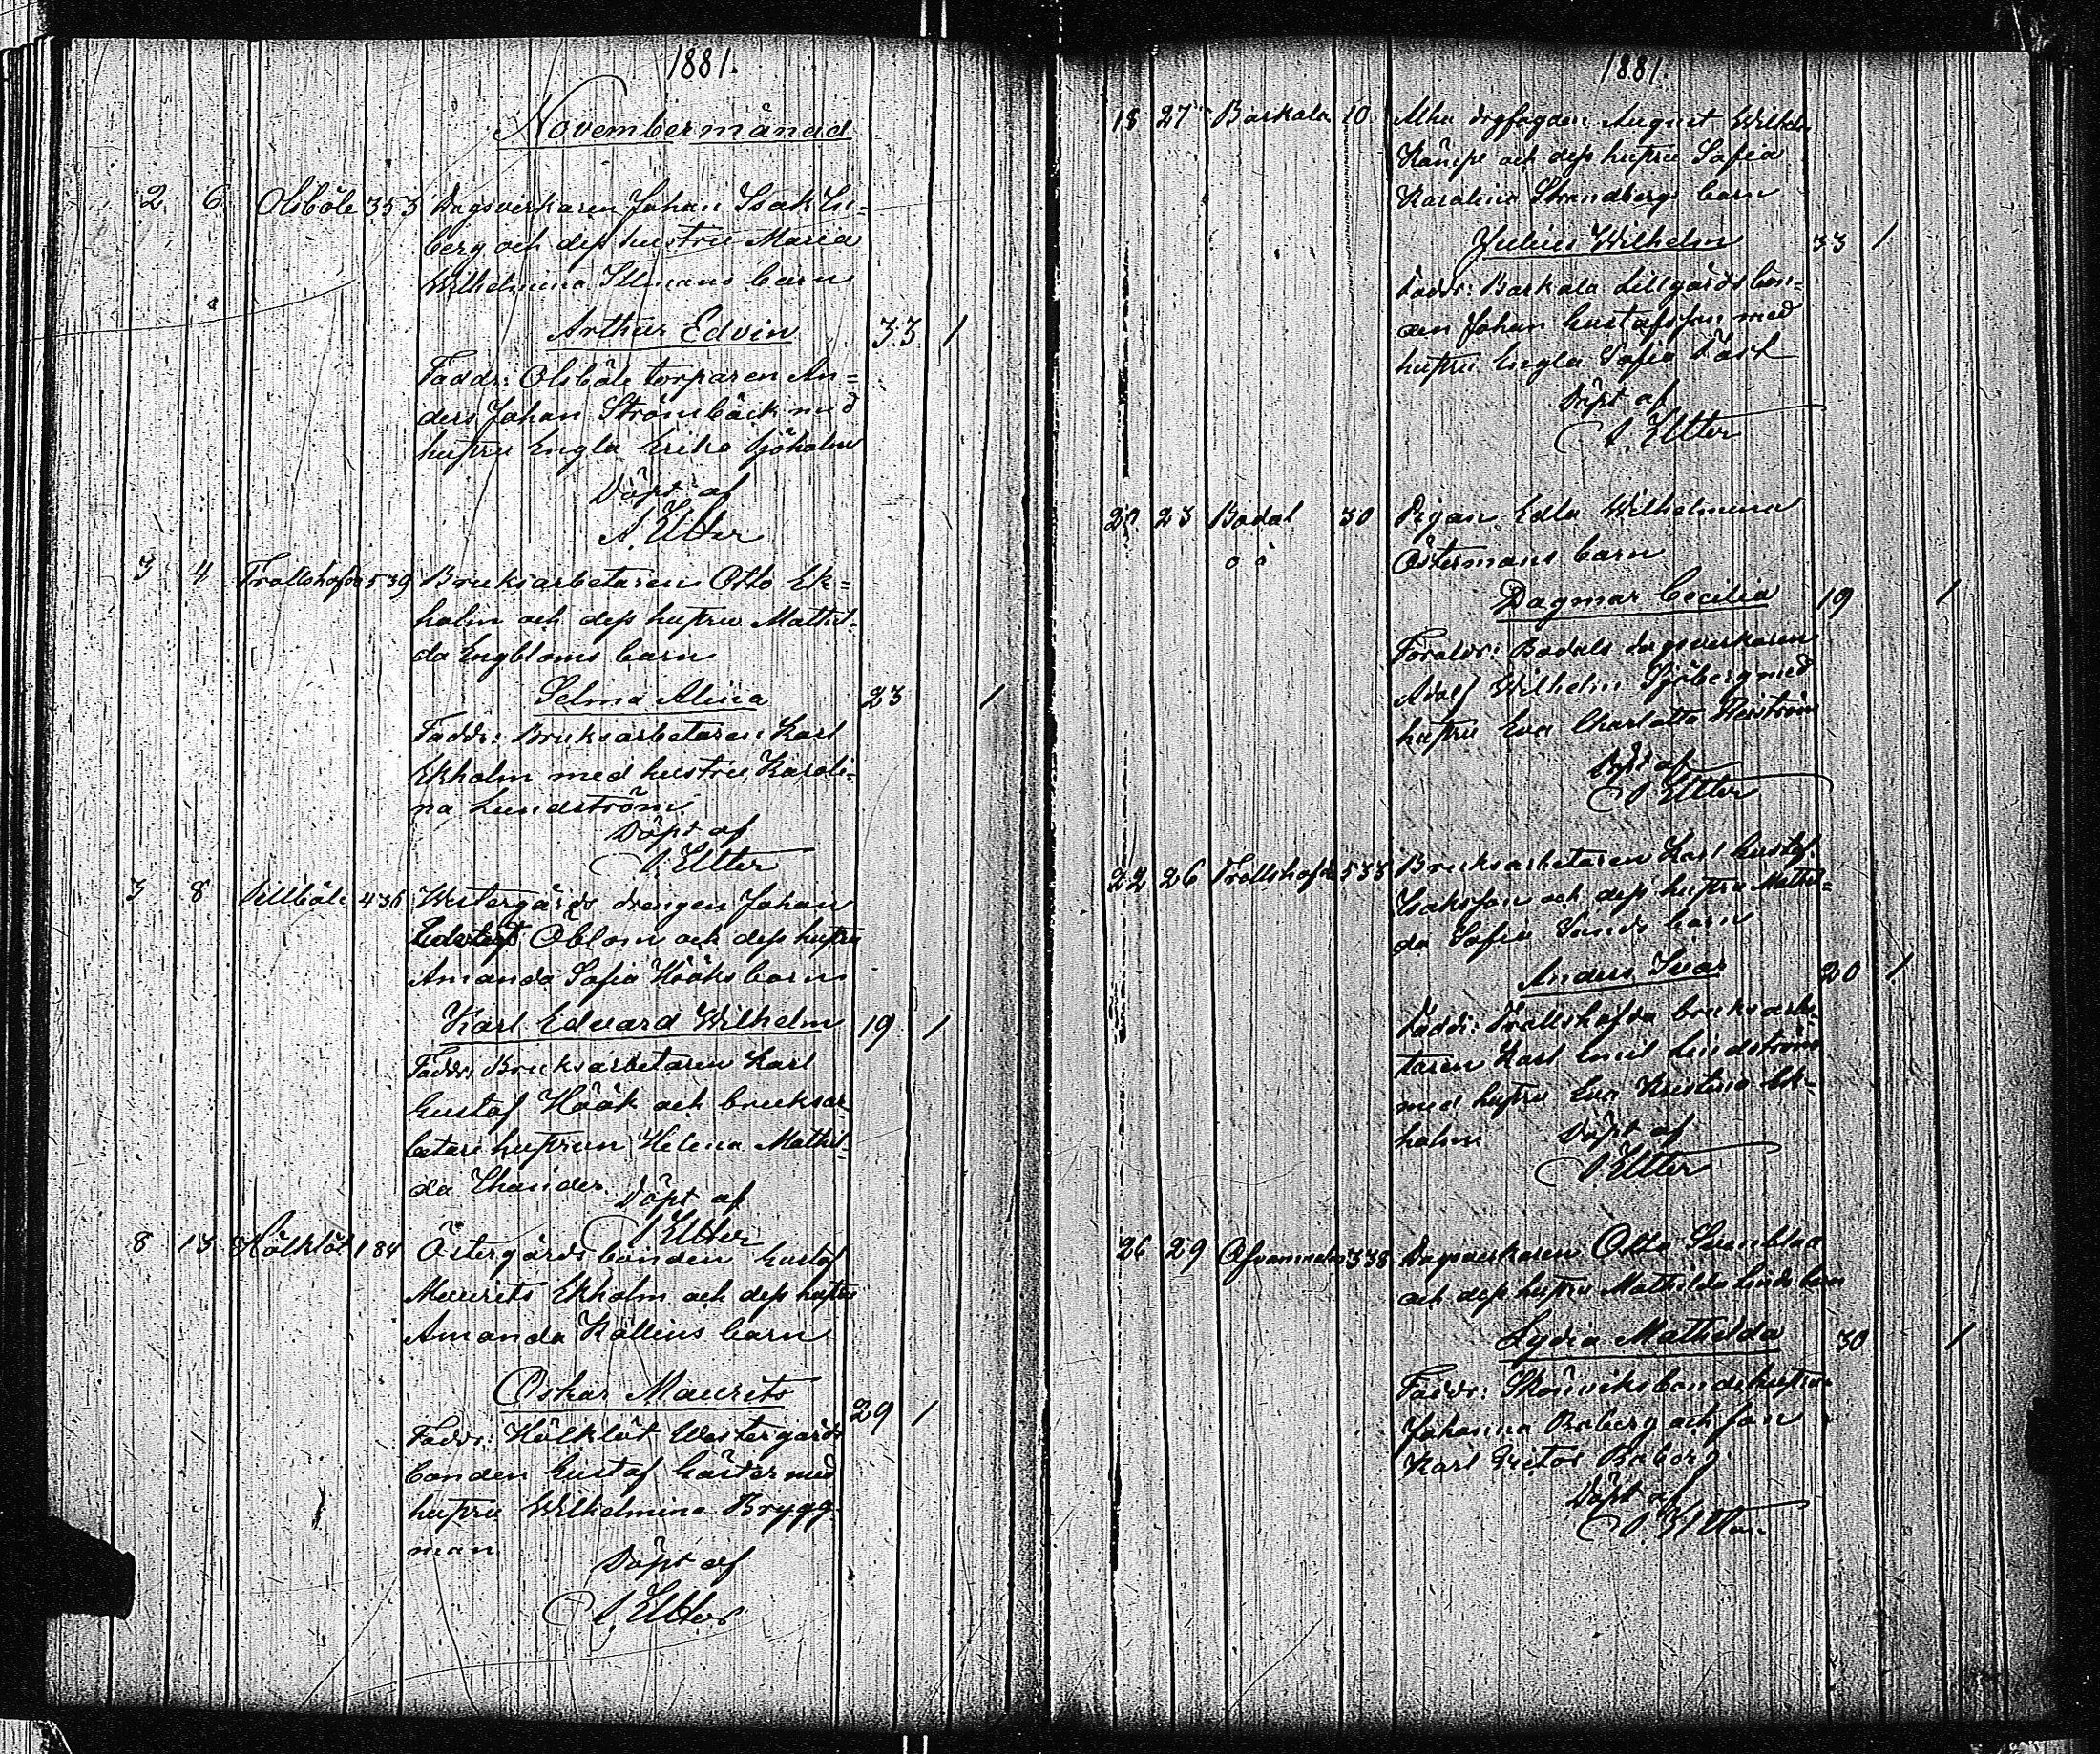 1881.
Novembermånad
2. 6. Olsböle 353 Dagsverkaren Johan Isak Is=
berg och dess hustru Maria
Wilhelmina Illmans barn
Arthur Edvin 33 1
Faddr: Olsböle torparen An=
ders Johan Strömbäck med
hustru Engla Erika Sjöholm
Döpt af
A. Utter
3 4 Trollshofda 539 Bruksarbetaren Otto Ek=
holm och dess hustru Mathil=
da Engbloms barn
Selma Alina 23 1
Faddr: Bruksarbetaren Karl
Ekholm med hustru Karoli=
na Lundström
Döpt af
A. Utter
3 8 436 Westergårds drengen Johan
Öblom och dess hustru
Amanda Sofia Hööks barn
Karl Edvard Wilhelm 19 1
Faddr: Bruksarbetaren Karl
Gustaf Höök och bruksar=
betare hustrun Helena Mathil=
da
Döpt af
A. Utter
8 13 184 Östergårds bonden Gustaf
Maurits Ekholm och dess hustru
Amanda barn
Oskar Maurits 29 1
Faddr: Westergårds
bonden Gustaf med
hustru Wilhelmina Brygg=
man
Döpt af
A. Utter
1881.
18 27 Baskala 10 August Wilhelm
och dess hustru Sofia
Karolina Strandbergs barn
Julius Wilhelm 33 1
Faddr: Baskala Lillgårds bon=
den Johan Gustafsson med
hustru Engla Sofia
Döpt af
A. Utter
20 23 Badal 30 Pigan Edla Wilhelmina
o ä Östermans barn
Dagmar Cecilia 19 1
Föräldr: Badals dagsverkaren
Adolf Wilhelm Sjöberg med
hustru Eva Charlotta
Döpt af
A. Utter
22 26 Trollshofda 533 Bruksarbetaren Karl Gustaf
Isaksson och dess hustru Mathil=
da Sofia Sunds barn
Anders Ivar 20 1
Faddr: Trollshofda bruksarbe=
taren Karl Emil Lindström
med hustru Eva Kristina Ek=
holm Döpt af
A. Utter
26 29 338 Dagsverkaren Otto Svenblad
och dess hustru Mathilda Linds barn
Lydia Mathilda 30 1
Faddr: bondehustrun
Johanna Boberg och son
Karl Victor Boberg
Döpt af
A. Utter